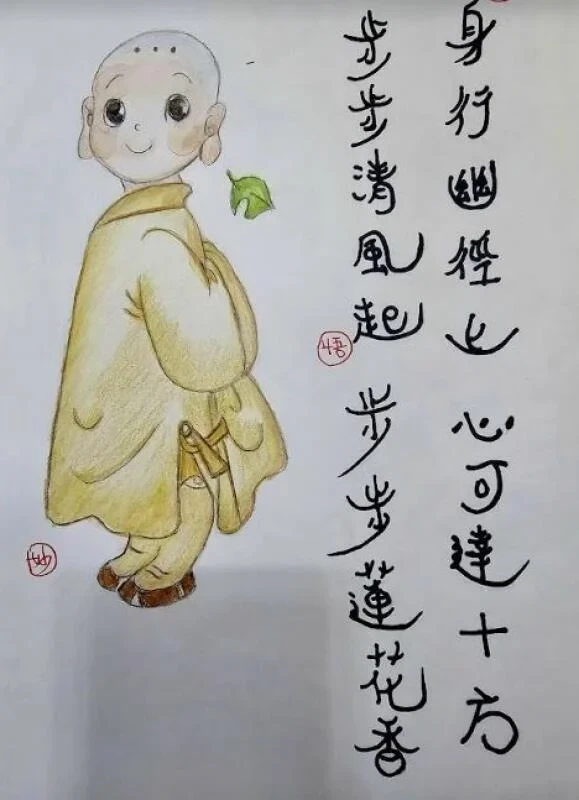 身行幽徑上 心可達十方
步步清風起 步步蓮花香
悟
妙